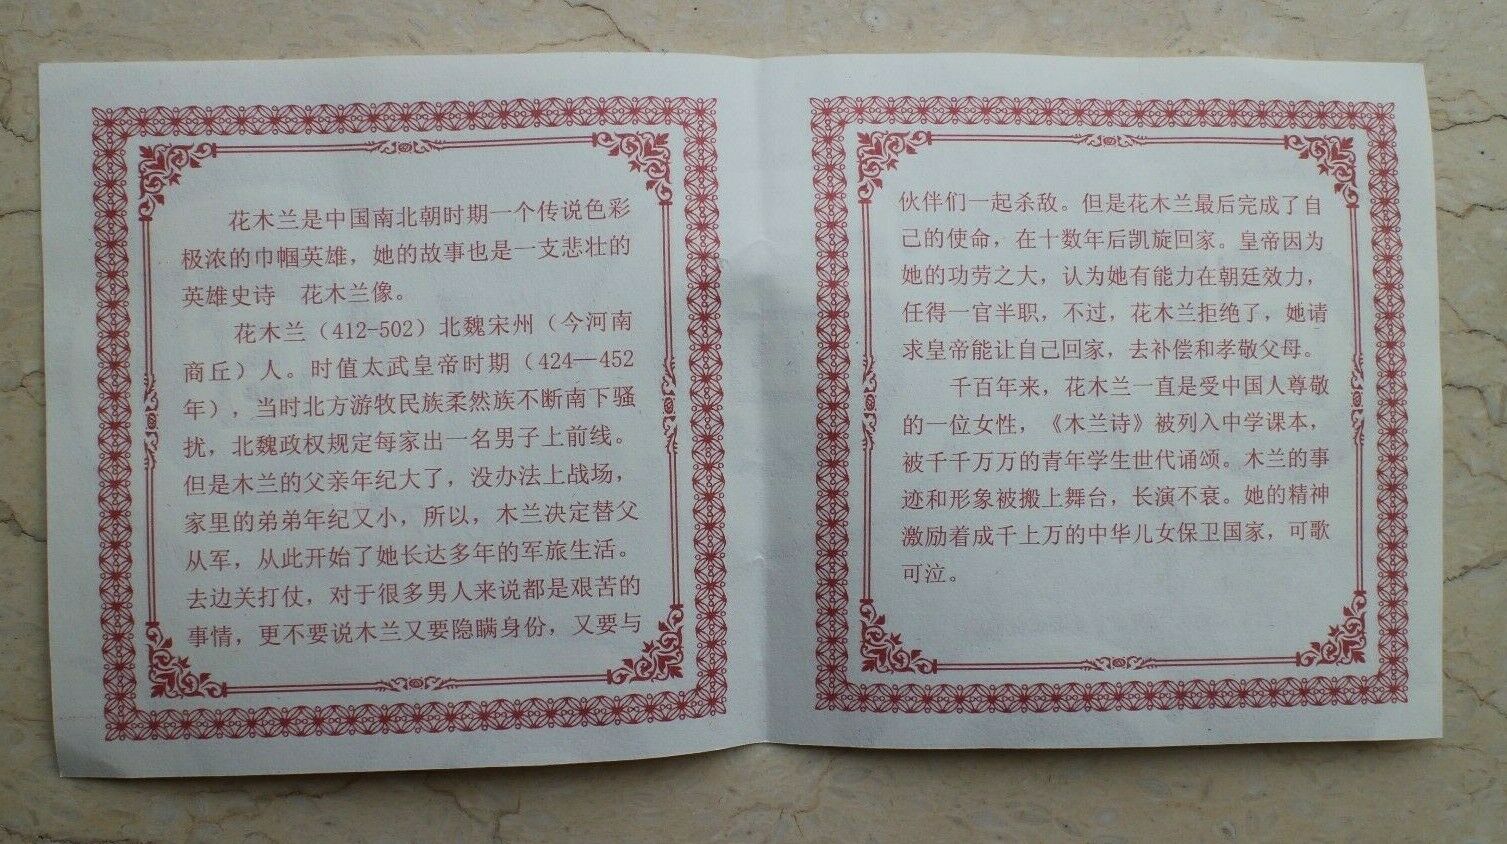 花木兰是中国南北朝时期一个传说色彩
极浓的巾帼英雄，她的故事也是一支悲壮的
英雄史诗　花木兰像。
花木兰（412-502）北魏宋州（今河南
商丘）人。时值太武皇帝时期（424—452
年），当时北方游牧民族柔然族不断南下骚
扰，北魏政权规定每家出一名男子上前线。
但是木兰的父亲年纪大了，没办法上战场，
家里的弟弟年纪又小，所以，木兰决定替父
从军，从此开始了她长达多年的军旅生活。
去边关打仗，对于很多男人来说都是艰苦的
事情，更不要说木兰又要隐瞒身份，又要与
伙伴们一起杀敌。但是花木兰最后完成了自
己的使命，在十数年后凯旋回家。皇帝因为
她的功劳之大，认为她有能力在朝廷效力，
任得一官半职，不过，花木兰拒绝了，她请
求皇帝能让自己回家，去补偿和孝敬父母。
千百年来，花木兰一直是受中国人尊敬
的一位女性，《木兰诗》被列入中学课本，
被千千万万的青年学生世代诵颂。木兰的事
迹和形象被搬上舞台，长演不衰。她的精神
激励着成千上万的中华儿女保卫国家，可歌
可泣。